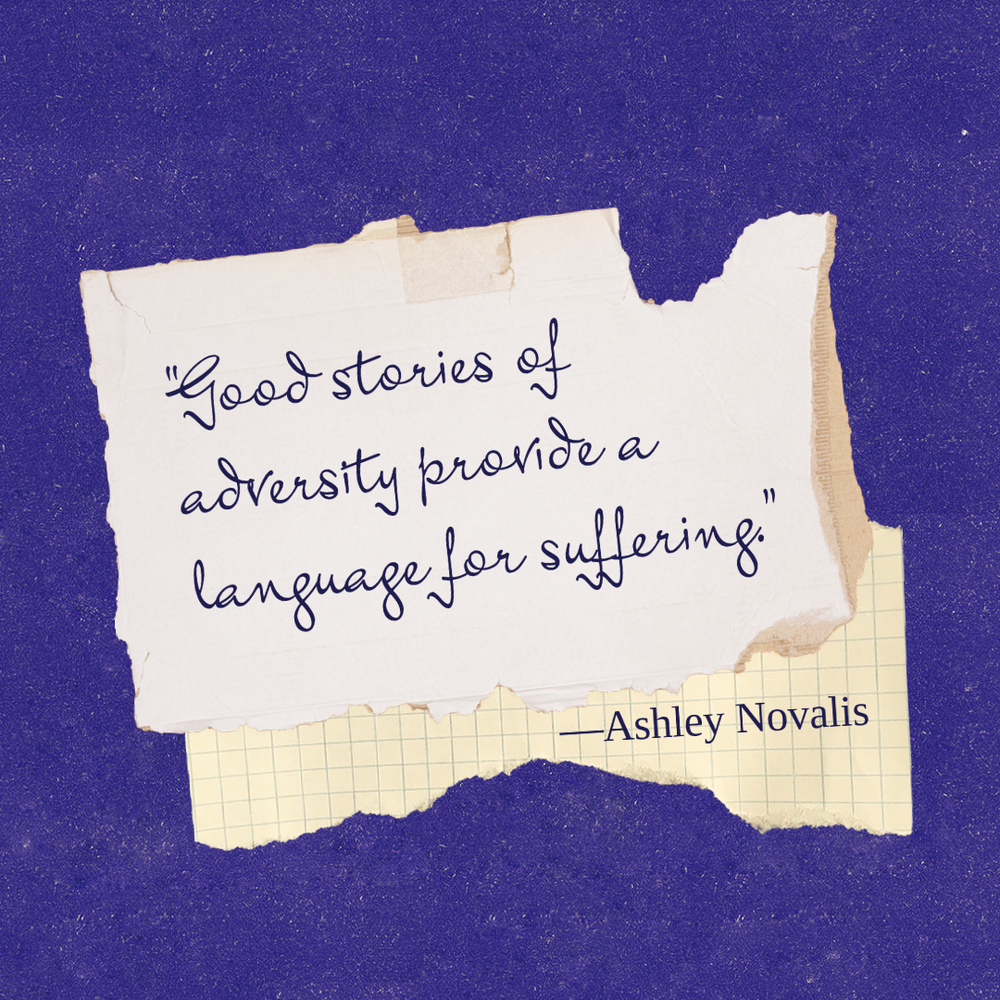 "Good stories of
adversity provide a
language for suffering."
—Ashley Novalis